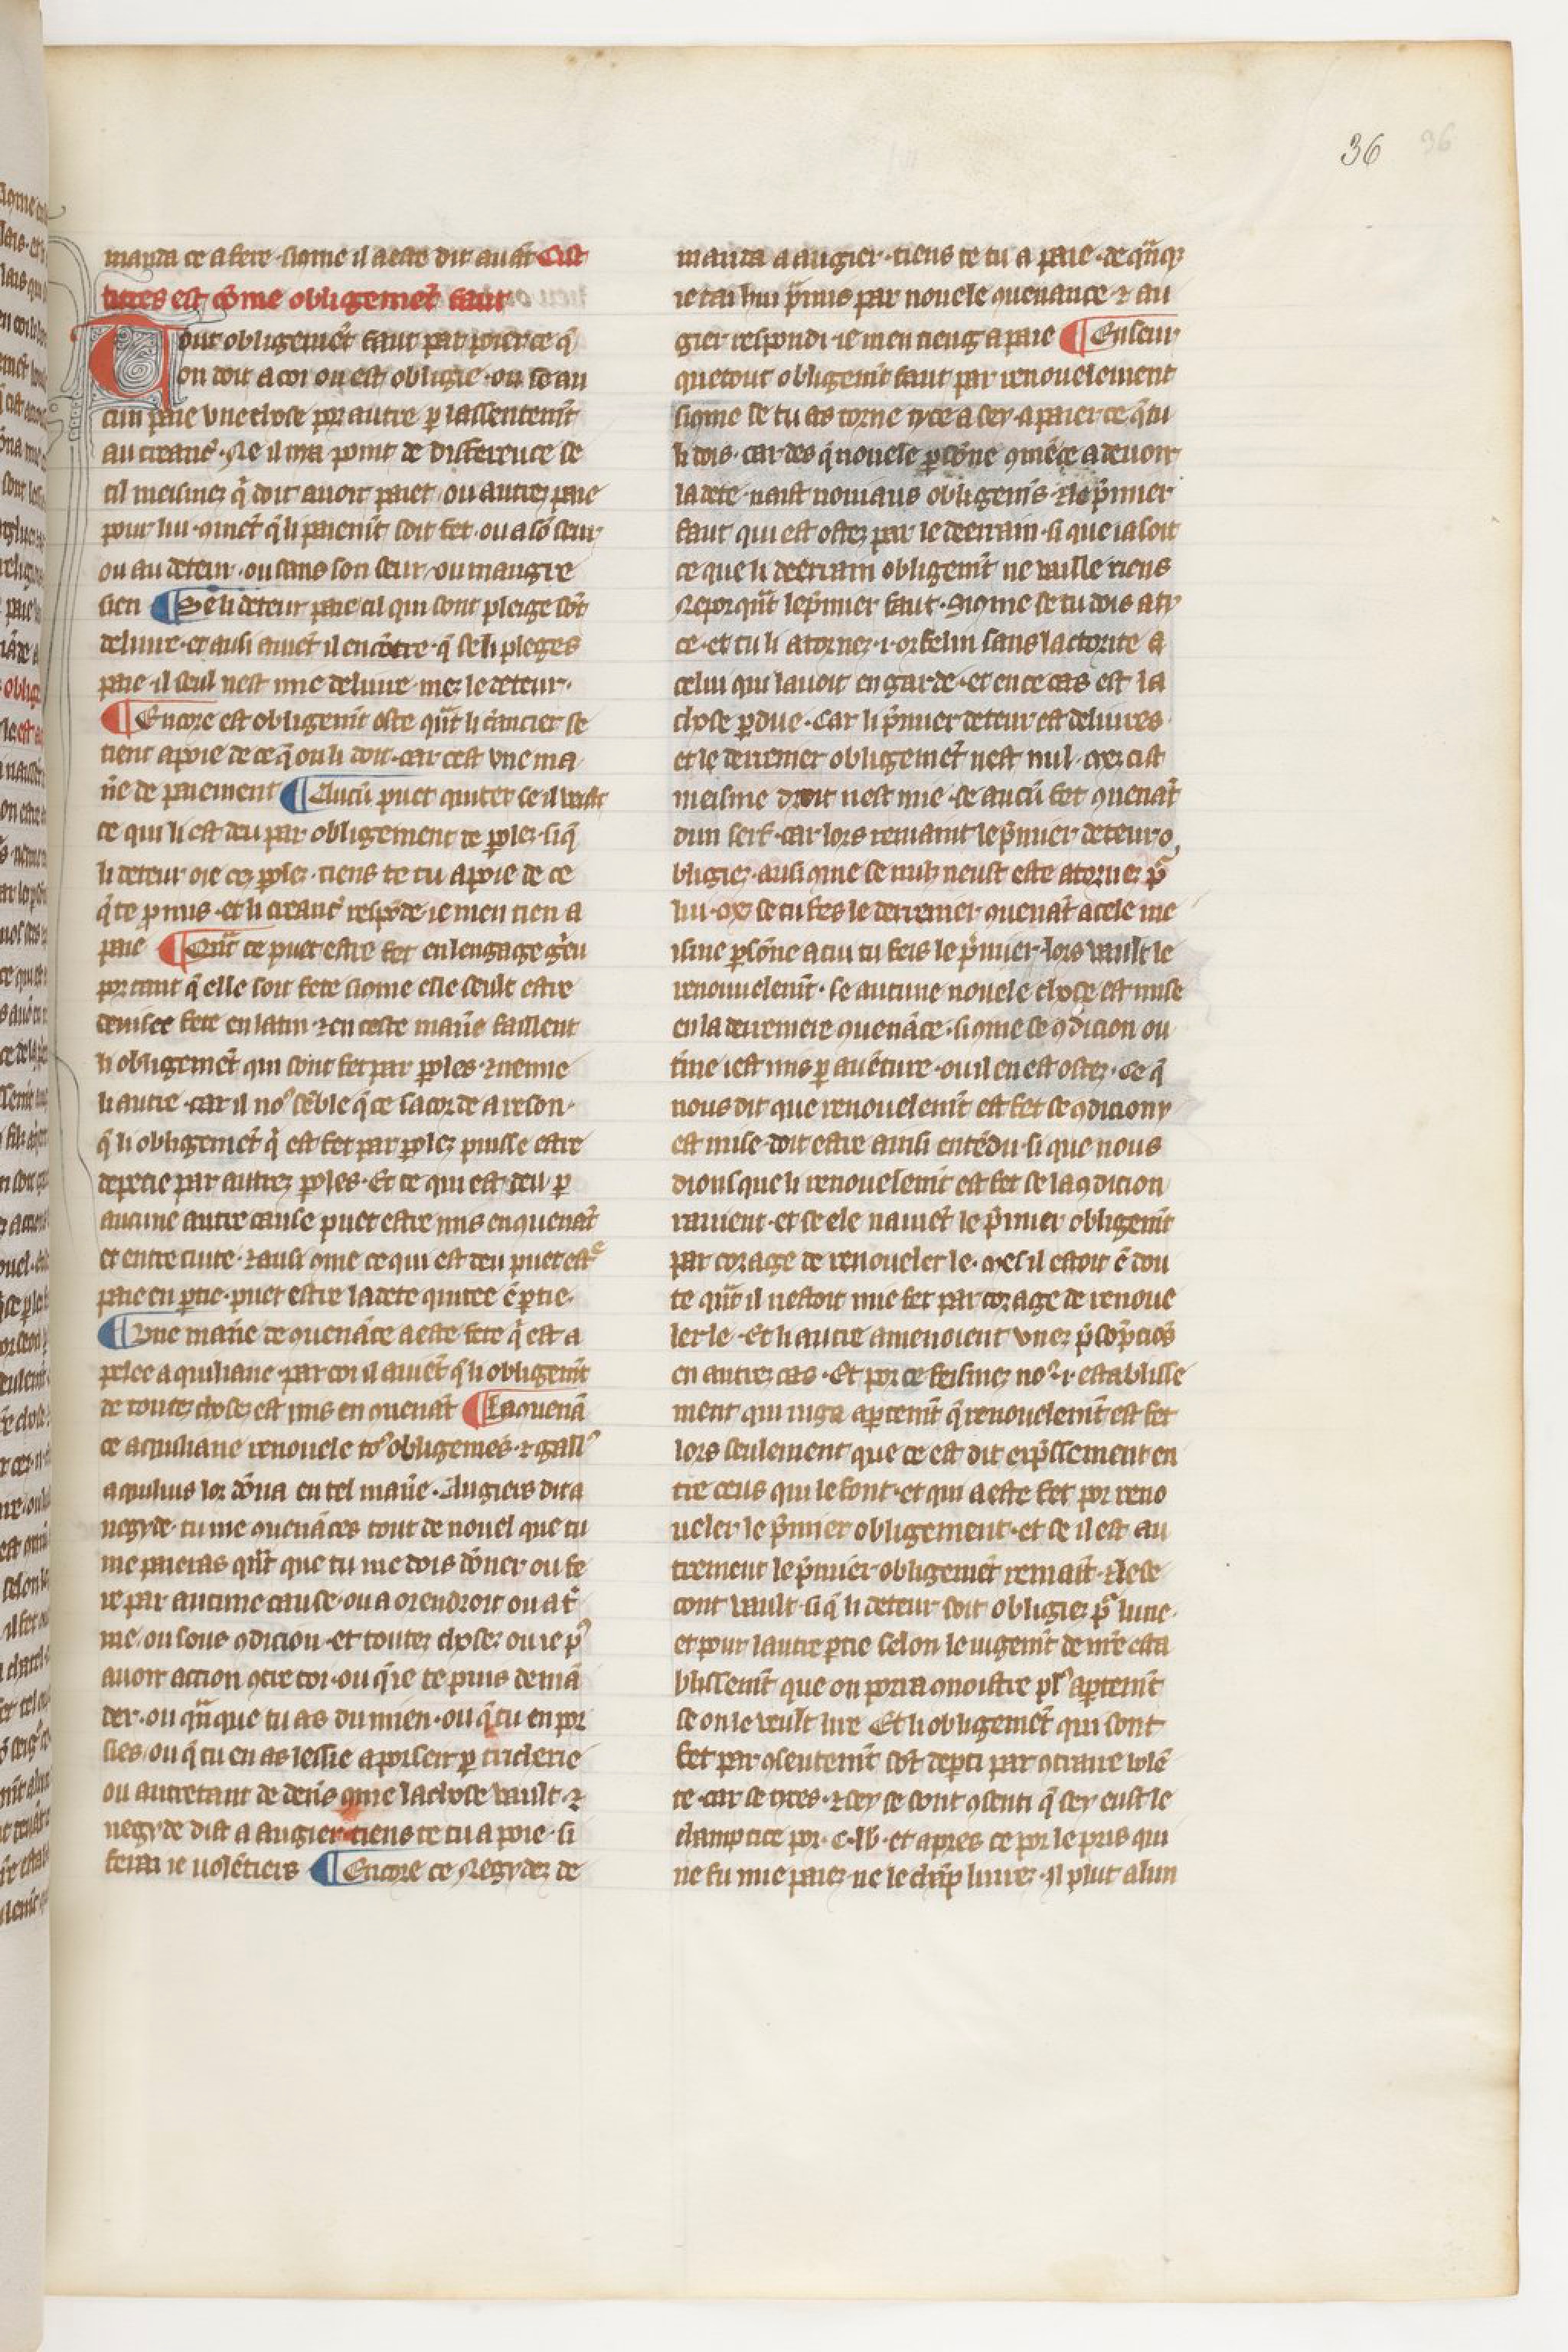 36 36
manda ce a fere · sigme il a este dit auãt Cist
titres est cõme obligemẽt faut
Tout obligemẽt faut par poier ce q̃
on doit a coi ou est obligie · ou se au
cun paie vne chose por autre p lassentemẽt
au creanc̃ · Ne il nia point de difference se
cil meismez q̃ doit auoir paiet · ou autrez paie
pour lui · qmẽt q̃ li paiemẽt soit fet · ou a sõ seur
ou au deteur · ou sans son seur · ou maugre
sien ¶ Se li deteur paie cil qui sont pleige sõt
deliure · et ausi auiẽt il encõtre · q̃ se li pleges
paie · il seul nest mie deliure · mez le deteur ·
¶ Encore est obligemẽt oste quãt li creancier se
tient a poie de ce q̃ on li doit · car cest vne ma
ñe de paiement ¶ Aucũ puet quiter se il veult
ce qui li est deu par obligement de poles · si q̃
li deteur die cez polez · tiens te tu a poie de ce
q̃ te p̃mis · et li creanc̃ respõde ie men tien a
paie ¶ Qũt ce puet estre fet en lengage greu
por tant q̃ elle soit fete sigme elle seult estre
deuisee fete en latin · ⁊ en ceste mañe faillent
li obligemẽt qui sont fet par poles · ⁊ nemie
li autre · car il noꝰ sẽble q̃ ce sacorde a reson ·
q̃ li obligemẽt q̃ est fet par polez puisse estre
depecie par autrez poles · Et ce qui est deu p
aucune autre cause puet estre mis en quenãt
et entre ciute · ⁊ ausi gme ce qui est deu puet estre
paie en ptie · puet estre la dete quitee ẽ ptie ·
¶ Vne mañe de quenãce a este fete q̃ est a
pelee aquiliane · par coi il auiẽt q̃ li obligemẽt
de toutez chosez est mis en quenãt ¶ La quenã
ce aquiliane renouele toꝰ obligemẽs · ⁊ gallꝰ
aquilius lor dõna en tel mañe · Augiers dit a
negyde · tu me quenãces tout de nouel que tu
me paieras quãt que tu me dois dõner ou fe
re par aucune cause · ou a orendroit ou a t̃
me · ou sous gdicion · et toutez chosez ou ie pꝰ
auoir action gtre toi · ou q̃ ie te puis demã
der · ou quãque tu as du mien · ou q̃ tu en por
sies · ou q̃ tu en as lessie a poiseir p tricherie
ou autretant de deñs gme la chose vault · ⁊
negyde dist a augier tiens te tu a poie · si
ferai ie uolẽtiers ¶ Encore ce Negydez de
manda a augier · tiens te tu a paie · de quãqz
ie tai hui p̃mis par nouele quenance ⁊ au
gier respondi · ie men tieng a paie ¶ Ensem
que tout obligemẽt faut par renouelement
sigme se tu as torne tyce a sey · a paier ce q̃ tu
li dois · car des q̃ nouele psõne gmẽce a deuoir
la dete · naist nouiaus obligemẽs · ⁊ le p̃mier
faut qui est ostez par le derrain · si que ia soit
ce que li derriain obligemẽt ne vaille riens
Neporquãt le p̃mier faut · Sigme se tu dois a ty
ce · et tu li atornez · i · orfelin sans lactorite a
celui qui lauoit en garde · et en ce cas est la
chose pdue · Car li p̃mier deteur est deliures ·
et le derrenier obligemẽt nest nul · mez cist
meisme droit nest mie · se aucũ fet quenãt
dun serf · car lors remaint le p̃mier deteur o
bligiez · ausi gme se nulz neust este atornez p̃
lui · oz se tu fes le derrenier quenãt a cele me
isme psõne a cui tu feis le p̃mier · lors vault le
renouuelemẽt · se aucune nouele chose est mise
en la derreniere quenãce · si gme se gdicion ou
tme iest mis p auẽture · ou il en est ostez · Ce q̃
nous dit que renouelemẽt est fet se gdicion y
est mise · doit estre ainsi entẽdu · si que nous
dions que li renouelemẽt est fet se la gdicion
rauient · et se ele nauiẽt le p̃mier obligemẽt
par corage de renoueler le · mes il estoit ẽ dou
te quãt il nestoit mie fet par corage de renoue
ler le · Et li autre amenoient vnez p̃sõpciõs
en autrez cas · Et por ce feismez noꝰ · i · establisse
ment qui iuga aptemẽt q̃ renouelemẽt est fet
lors seulement que ce est dit exp̃ssement en
tre ceus qui le font · et qui a este fet por reno
ueler le p̃mier obligement · et se il est au
trement le p̃mier obligemẽt remaĩt · ⁊ le se
cont vault · si q̃ li deteur soit obligiez p̃ lune ·
et pour lautre ptie selon le iugemẽt de nr̃e esta
blissemẽt que on porra gnoistre plꝰ aptemẽt
se on le veult lire Et li obligemẽt qui sont
fet par gsentemẽt sõt depci par gtraire uolẽ
te · car se tyres · ⁊ sey se sont gsenti q̃ sey eust le
champ tice por · C · lb · et apres ce por le pris qui
ne fu mie paiez · ne le chãp liurez · il plut a lun